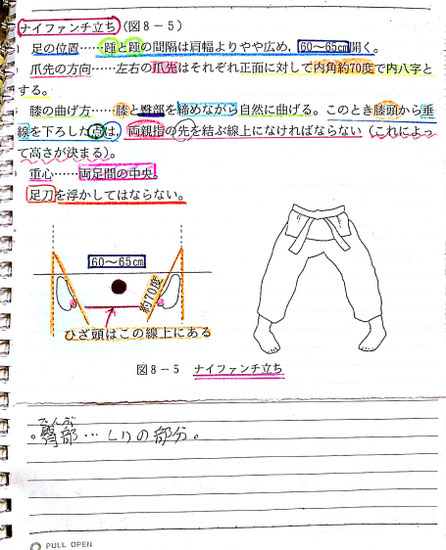 ナイファンチ立ち(図8-5)
足の位置……踵と踵の間隔は肩幅よりやや広め,60~65cm開く。
爪先の方向……左右の爪先はそれぞれ正面に対して内角約70度で内八字と
する。
膝の曲げ方……膝と臀部を締めながら自然に曲げる。このとき膝頭から垂
線を下ろした点は,両親指の先を結ぶ線上になければならない(これによっ
て高さが決まる)。
重心……両足間の中央。
足刀を浮かしてはならない。
60~65cm
約70度
ひざ頭はこの線上にある
図8-5 ナイファンチ立ち
でんぶ
。臀部…しりの部分。
PULL OPEN